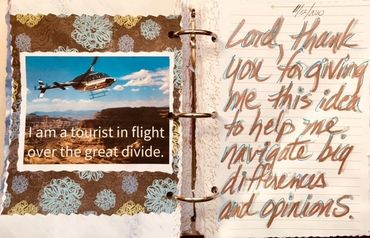 I am a tourist in flight
over the great divide.
Lord, thank
you for giving
me this idea
to help me
navigate big
differences
and opinions.